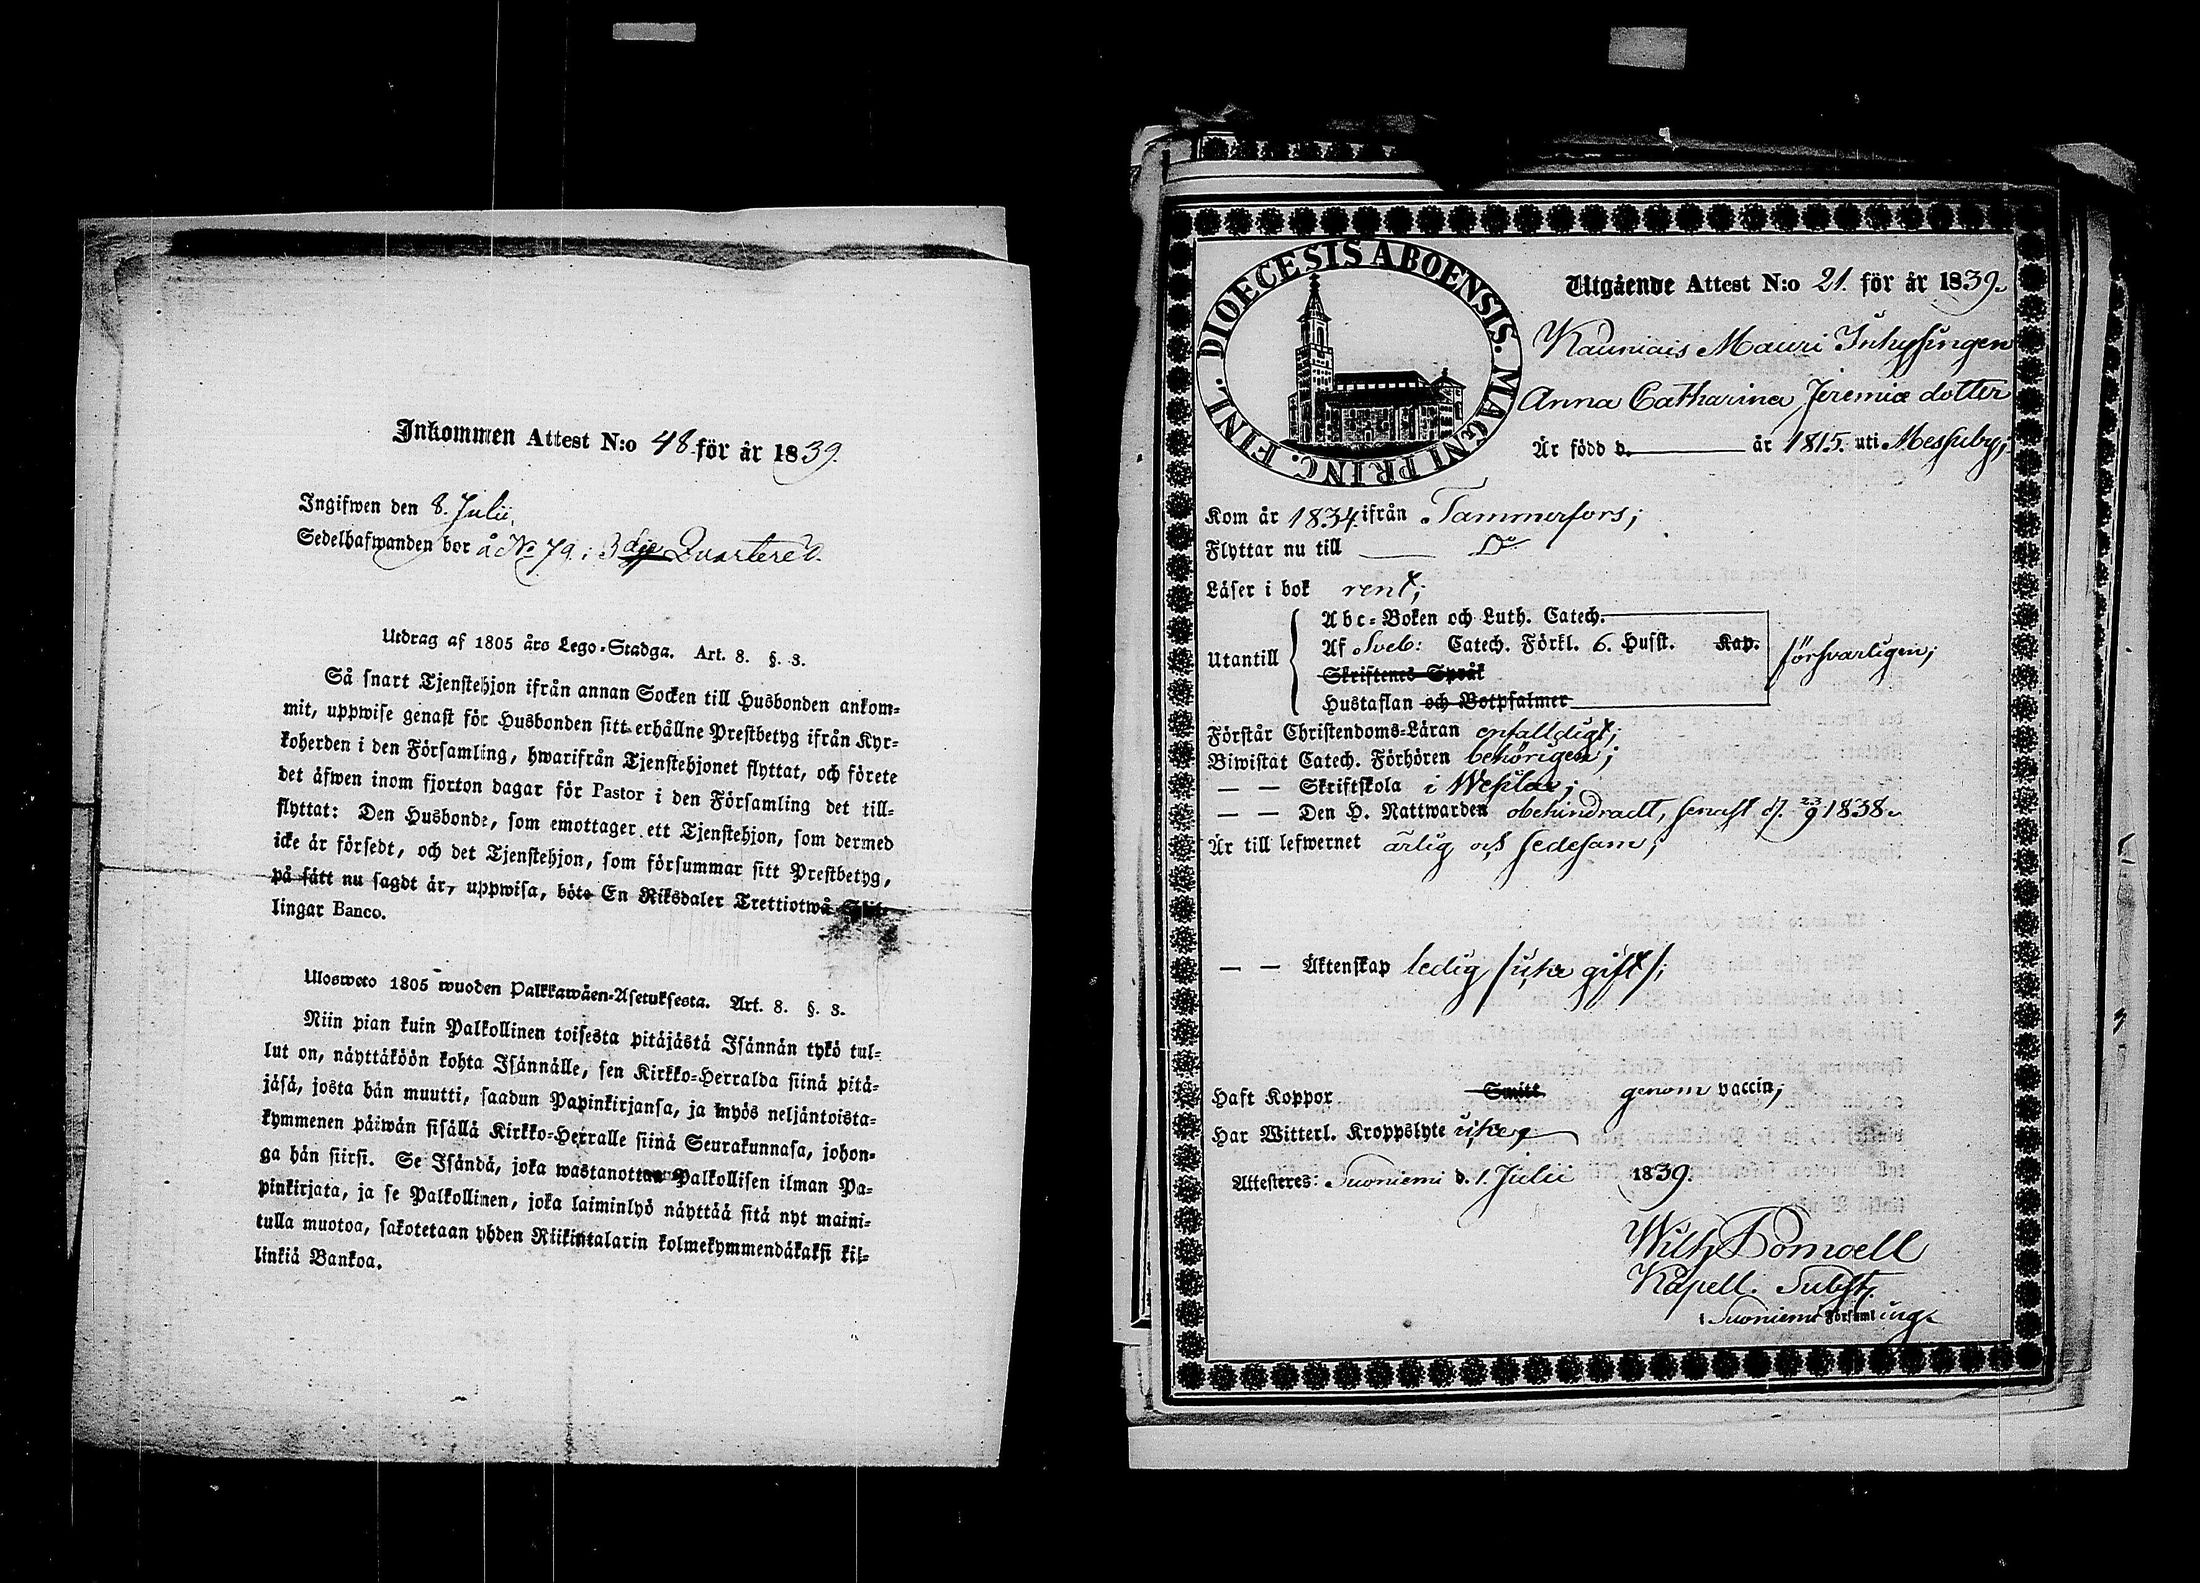 Inkommen Attest N:o 48 för år 1839.
Ingifwen den 8. Julii.
Sedelhafwanden bor å No 79. i 3dje Quarteret.
Utdrag af 1805 års Lego-Stadga. Art. 8. §. 3.
Så snart Tjenstehjon ifrån annan Socken till Husbonden ankom-
mit, uppwise genast för Husbonden sitt erhållne Prestbetyg ifrån Kyr-
koherden i den Församling, hwarifrån Tjenstehjonet flyttat, och förete
det äfwen inom fjorton dagar för Pastor i den Församling det till-
flyttat: Den Husbonde, som emottager ett Tjenstehjon, som dermed
icke är försedt, och det Tjenstehjon, som försummar sitt Prestbetyg,
på sätt nu sagdt är, uppwisa, böte En Riksdaler Trettiotwå Skil-
lingar Banco.
Ulosweto 1805 wuoden Palkkawäen-Asetuksesta. Art. 8. §. 3.
Niin pian kuin Palkollinen toisesta pitäjästä Isännän tykö tul-
lut on, näyttäköön kohta Isännälle, sen Kirkko-Herralda siinä pitä-
jäsä, josta hän muutti, saadun Papinkirjansa, ja myös neljäntoista-
kymmenen päiwän sisällä Kirkko-Herralle siinä Seurakunnasa, johon-
ga hän siirsi. Se Isändä, joka wastanottaa Palkollisen ilman Pa-
pinkirjata, ja se Palkollinen, joka laiminlyö näyttää sitä nyt maini-
tulla muotoa, sakotetaan yhden Riikintalarin kolmekymmendäkaksi kil-
linkiä Bankoa.
DIOECESIS ABOENSIS. MAGNI PRINC. FINL.
Utgående Attest N:o 21. för år 1839.
Kauniais Mauri Inhysingen
Anna Catharina Jeremiæ dotter
Är född d. år 1815. uti Messuby;
Kom år 1834 ifrån Tammerfors;
Flyttar nu till Do
Läser i bok rent;
Utantill
Abc-Boken och Luth. Catech.
Af Sveb: Catech. Förkl. 6. Hufst. Kap.
Skriftenes Språk
Hustaflan och Botpsalmer
försvarligen;
Förstår Christendoms-Läran enfalldigt;
Biwistat Catech. Förhören behörigen;
— — Skriftskola i Wesilax;
— — Den H. Nattwarden obehindradt, senast d. 23/9 1838.
Är till lefwernet ärlig och sedesam;
— — Äktenskap ledig /icke gift/;
Haft Koppor Smitt genom vaccin;
Har Witterl. Kroppslyte icke;
Attesteres: Suoniemi d. 1. Julii 1839.
Wilh
Kapell. Subst.
i Suoniemi Församling.